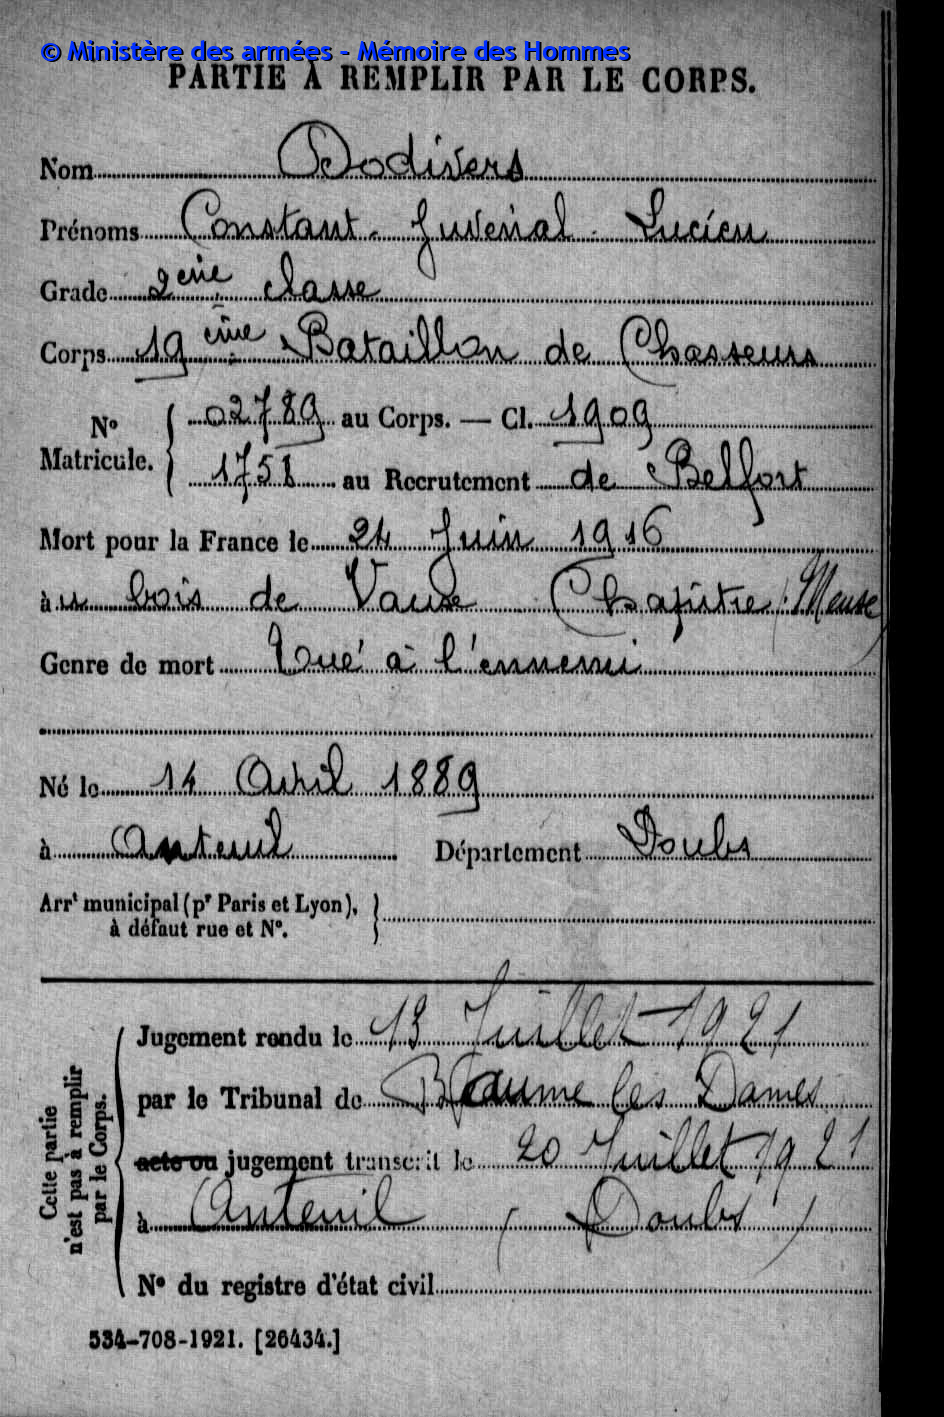 © Ministère des armées - Mémoire des Hommes
PARTIE À REMPLIR PAR LE CORPS.
Nom Dodivers
Prénoms Constant - Juvénal - Lucien
Grade 2ème classe
Corps 19ème Bataillon de Chasseurs
No Matricule. 02789 au Corps. — Cl. 1909
1758 au Recrutement de Belfort
Mort pour la France le 24 Juin 1916
àu bois de Vaux Chapitre (Meuse)
Genre de mort Tué à l'ennemi
Né le 14 Avril 1889
à Anteuil Département Doubs
Arrt municipal (pr Paris et Lyon),
à défaut rue et No.
Cette partie
n'est pas à remplir
par le Corps.
Jugement rendu le 13 Juillet 1921
par le Tribunal de Baume les Dames
acte ou jugement transcrit le 20 Juillet 1921
à Anteuil (Doubs)
No du registre d'état civil
534-708-1921. [26434.]